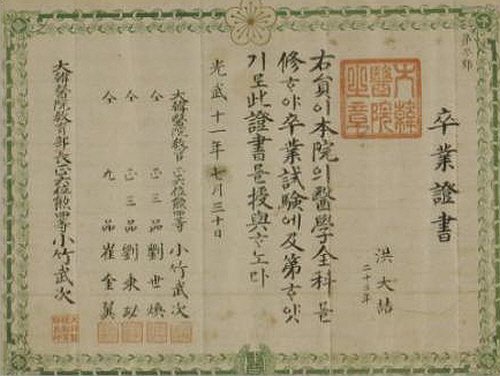 卒業證書
洪大喆
二十三年
大韓醫院之章
右員이本院의醫學全科를
修ᄒᆞ야卒業試驗에及第ᄒᆞ얏
기로此證書를授與ᄒᆞ노라
光武十一年七月三十日
大韓醫院敎官正六位勲四等 小竹武次
仝 正三品 劉世煥
仝 正三品 劉秉珌
仝 九品 崔奎翼
大韓醫院敎育部長正六位勲四等 小竹武次